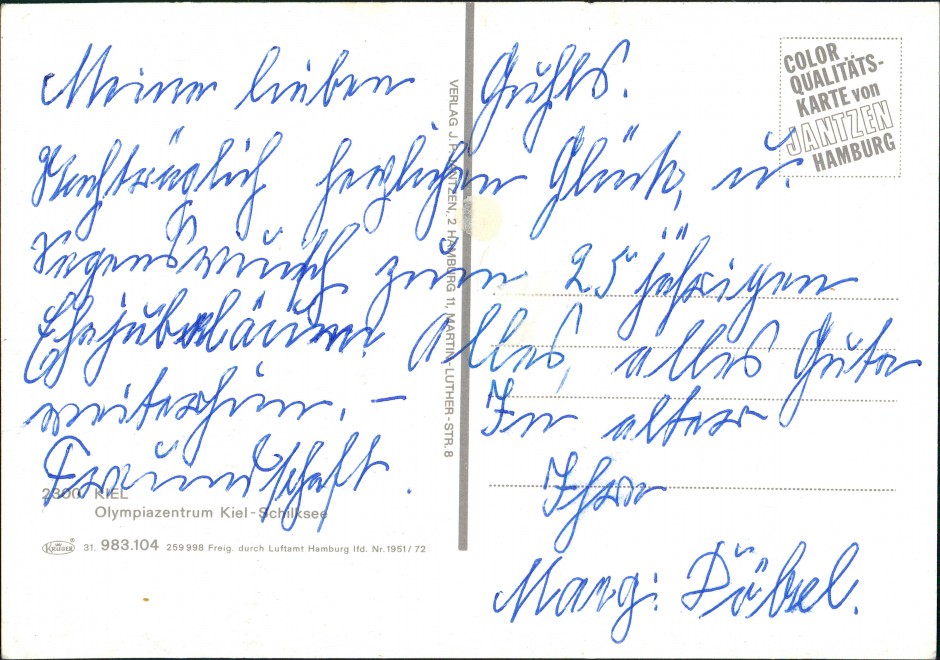 Meine lieben Guhls.
Nachträglich herzlichen Glück, u.
Segenswunsch zum 25 jährigen
Ehejubeläum. Alles, alles Gute
weiterhin. — In alter
Freundschaft.
Ihre
Marg. Döbel.
COLOR
QUALITÄTS-
KARTE von
JANTZEN
HAMBURG
VERLAG J. P. JANTZEN, 2 HAMBURG 11, MARTIN-LUTHER-STR. 8
2300 KIEL
Olympiazentrum Kiel-Schilksee
KRÜGER 31. 983.104 259998 Freig. durch Luftamt Hamburg lfd. Nr. 1951/72